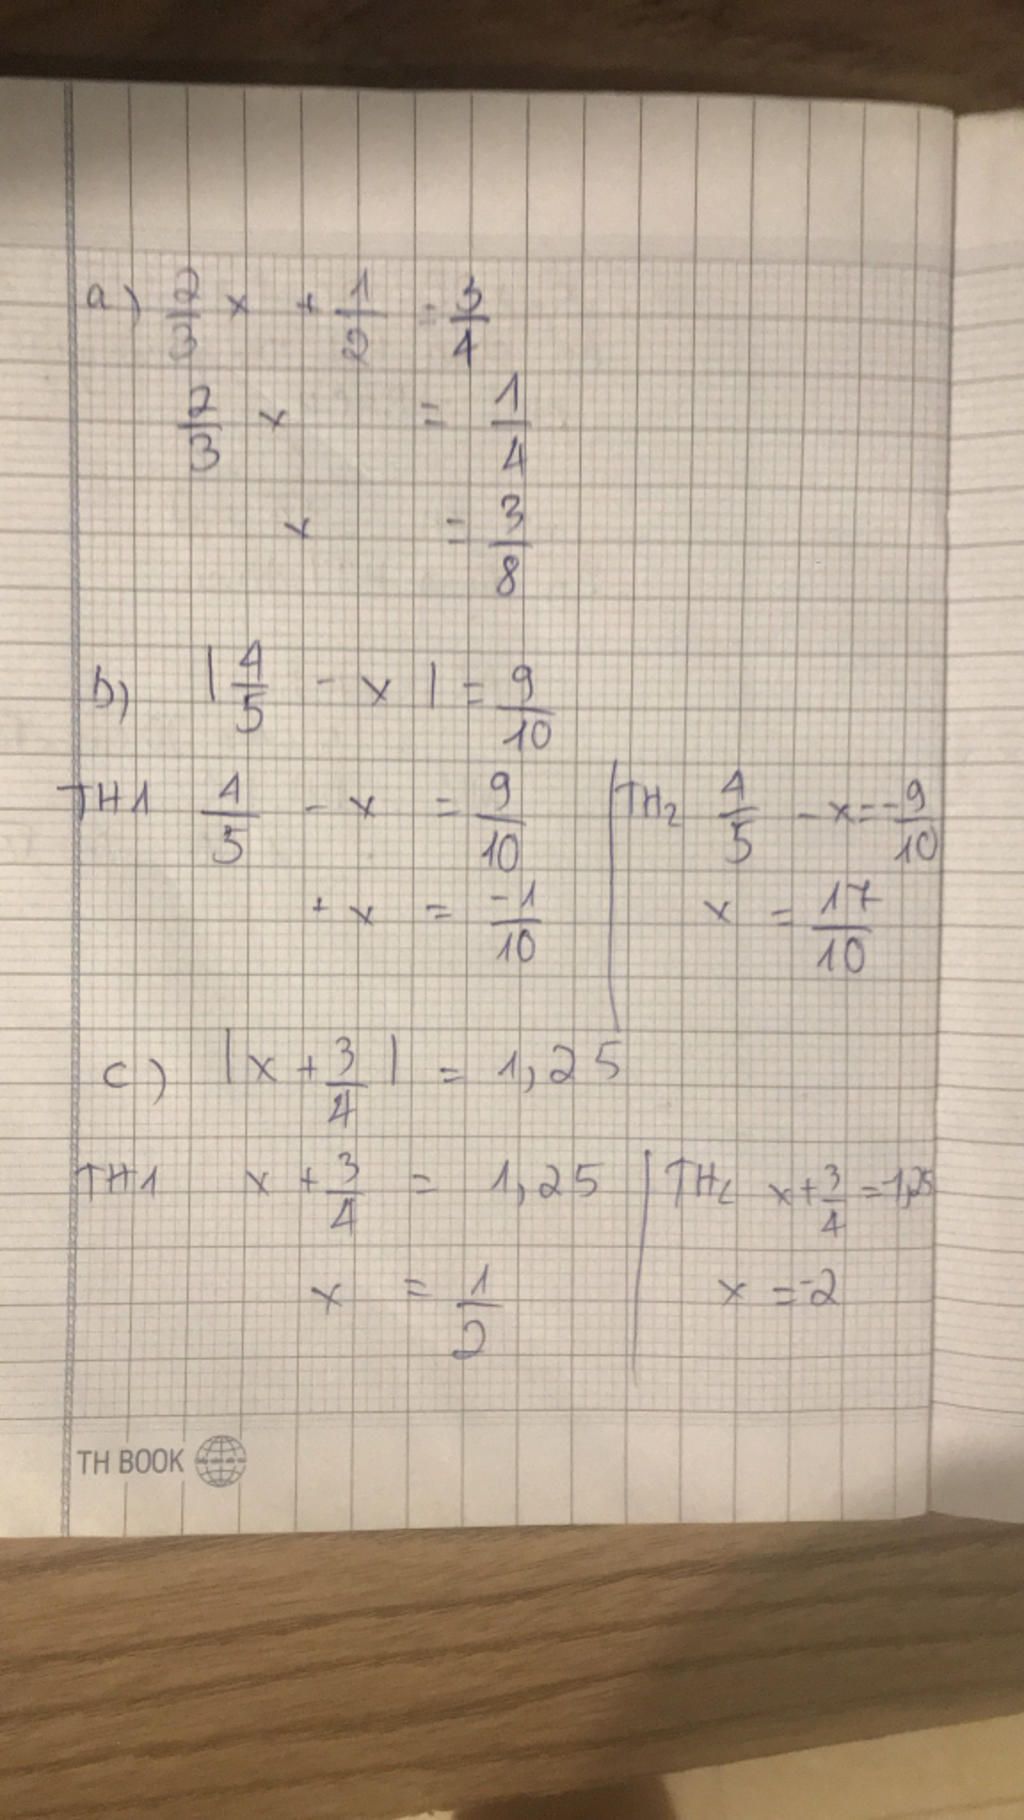 a) 2/3 x + 1/2 = 3/4
2/3 x = 1/4
x = 3/8
b) |4/5 - x| = 9/10
TH1 4/5 - x = 9/10
TH2 4/5 - x = -9/10
+ x = -1/10
x = 17/10
c) |x + 3/4| = 1,25
TH1 x + 3/4 = 1,25
TH2 x + 3/4 = -1,25
x = 1/2
x = -2
TH BOOK